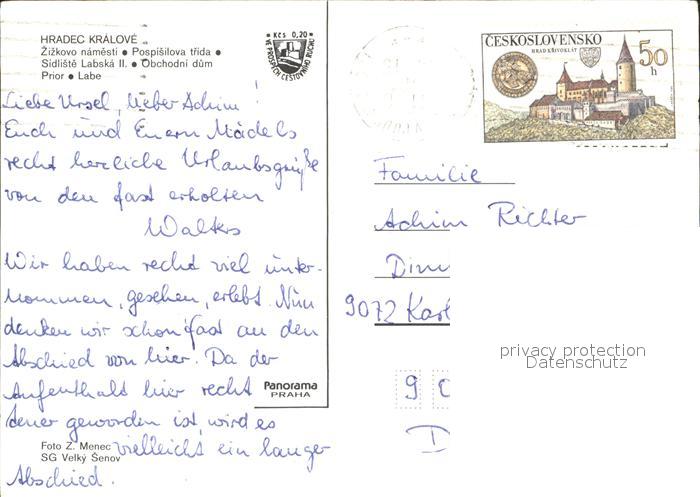 HRADEC KRÁLOVÉ
Žižkovo náměstí ● Pospíšilova třída ●
Sídliště Labská II. ● Obchodní dům
Prior ● Labe
● Kčs 0,20 ●
VE PROSPĚCH CESTOVNÍHO RUCHU
ČESKOSLOVENSKO
HRAD KŘIVOKLÁT
50
h
Liebe Ursel, lieber Achim!
Euch und Euern Mädels
recht herzliche Urlaubsgrüße
von den fast erholten
Walters
Wir haben recht viel unter-
nommen, gesehen, erlebt. Nun
denken wir schon fast an den
Abschied von hier. Da der
Aufenthalt hier recht
teuer geworden ist, wird es
vielleicht ein langer
Abschied.
Panorama
PRAHA
Foto Z. Menec
SG Velký Šenov
Familie
Achim Richter
9072 Karl
9 0
D
privacy protection
Datenschutz